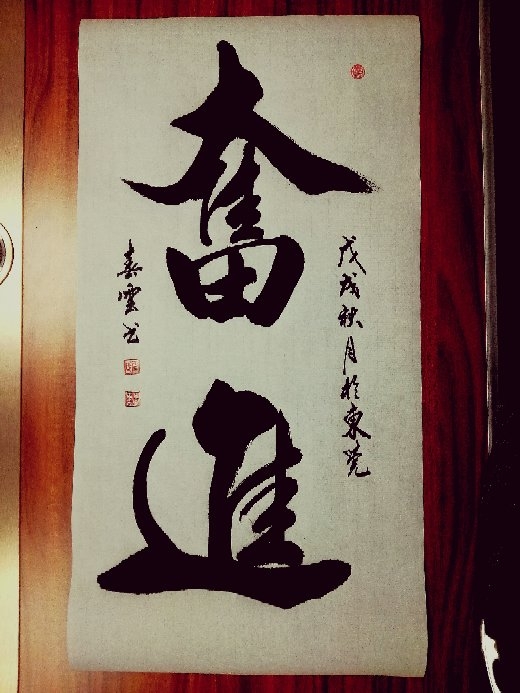 奮進
戊戌秋月於東莞
喜雲书